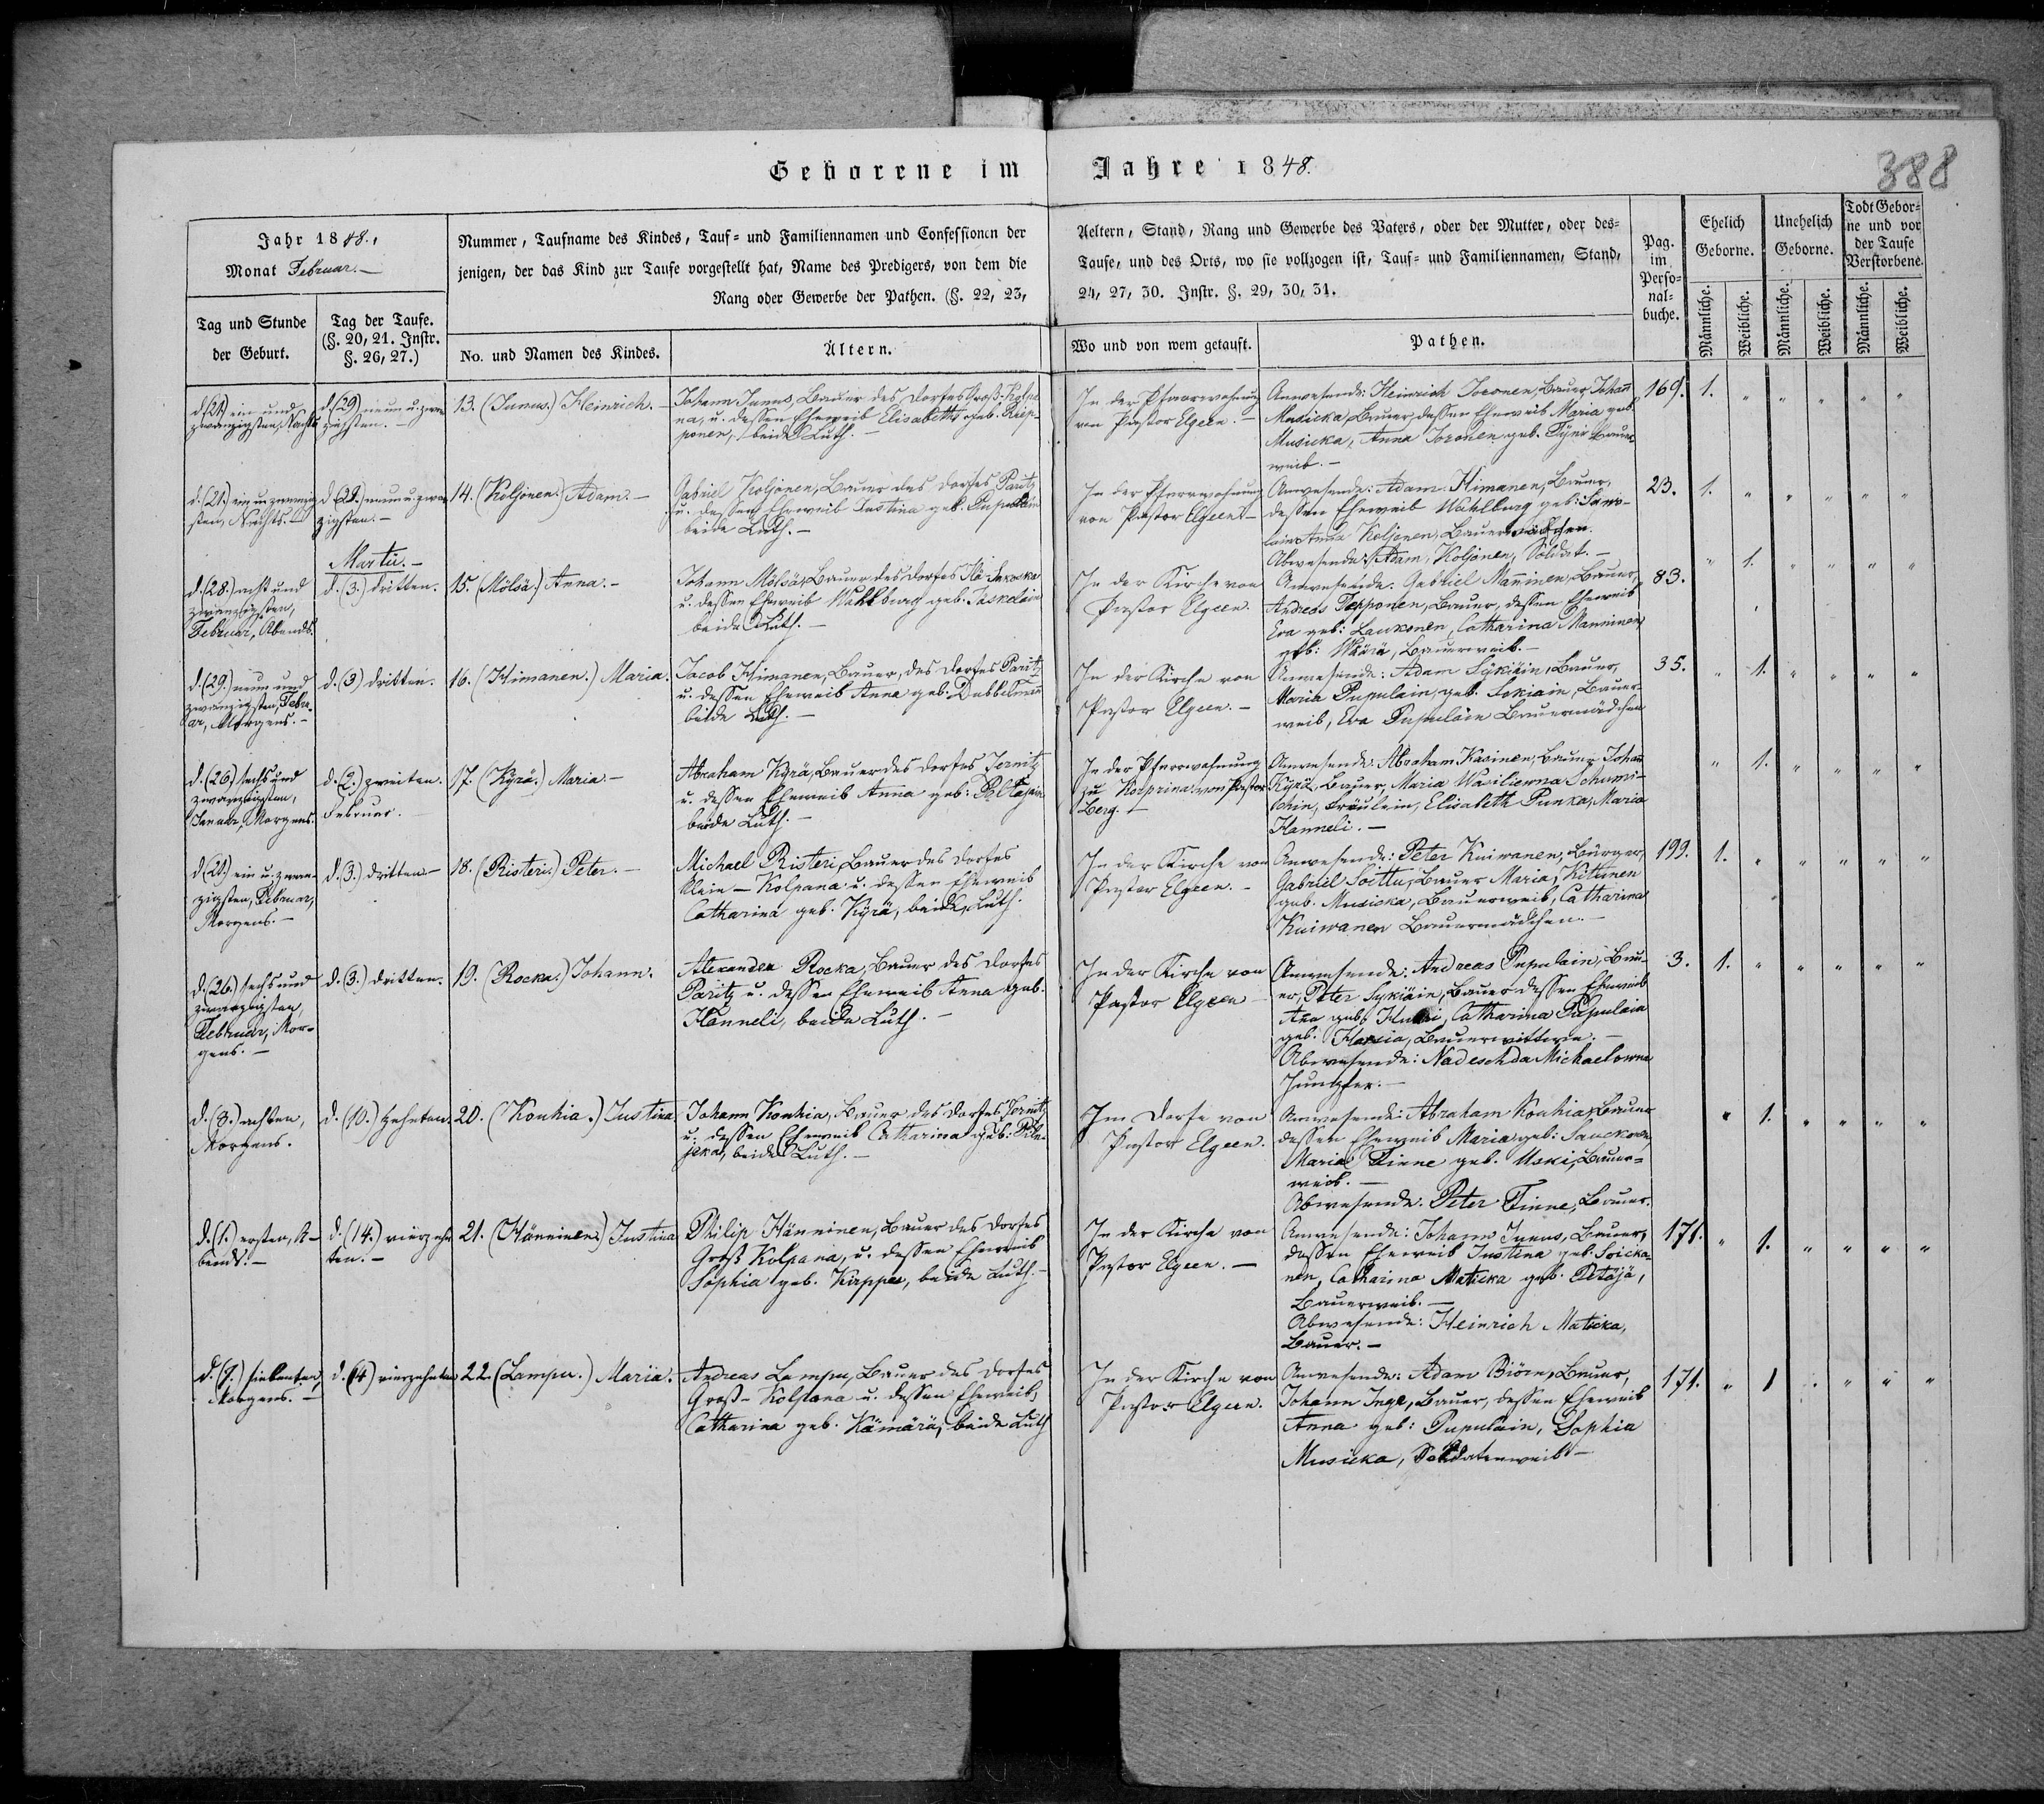 Geborene im Jahre 1848.
388
Jahr 1848.,
Monat Februar. —
Nummer, Taufname des Kindes, Tauf- und Familiennamen und Confessionen der
jenigen, der das Kind zur Taufe vorgestellt hat, Name des Predigers, von dem die
Rang oder Gewerbe der Pathen. (§. 22, 23,
Aeltern, Stand, Rang und Gewerbe des Vaters, oder der Mutter, oder des-
Taufe, und des Orts, wo sie vollzogen ist, Tauf- und Familiennamen, Stand,
24, 27, 30. Instr. §. 29, 30, 31.
Pag.
im
Perso-
nal-
buche.
Ehelich
Geborne.
Unehelich
Geborne.
Todt Gebor-
ne und vor
der Taufe
Verstorbene.
Tag und Stunde
der Geburt.
Tag der Taufe.
(§. 20, 21. Instr.
§. 26, 27.)
No. und Namen des Kindes.
Ältern.
Wo und von wem getauft.
Pathen.
Männliche.
Weibliche.
Männliche.
Weibliche.
Männliche.
Weibliche.
d. (21.) ein und
zwanzigsten, Nachts
d. (29) neun u. zwan
zigsten. —
13. (Junus.) Heinrich. —
Johann Junus, Bauer des Dorfes Groß-Kolpa
na, u. dessen Eheweib Elisabeth geb. Rep-
ponen, beide Luth. —
In der Pfarrwohnung
von Pastor Elgeen. —
Anwesende: Heinrich Soronen, Bauer, Johann
Musicka, Bauer, dessen Eheweib Maria geb.
Musicka, Anna Soronen geb. Tyni Bauer
weib. —
169. 1. " " " " "
d. (21.) ein u. zwanzig
sten, Nachts. —
d. (29.) neun u. zwan
zigsten. —
14. (Koljonen.) Adam. —
Gabriel Koljonen, Bauer des Dorfes Paritz
u. dessen Eheweib Justina geb. Pupulain
beide Luth. —
In der Pfarrwohnung
von Pastor Elgeen. —
Anwesende: Adam Himanen, Bauer,
dessen Eheweib Wahlburg geb: Sawo-
lain Anna Koljonen, Bauermädchen.
Abwesende: Adam Koljonen, Soldat. —
23. 1. " " " " "
Martii. —
d. (28.) acht und
zwanzigsten,
Februar, Abends.
d. (3.) dritten.
15. (Mölsä.) Anna. —
Johann Mölsä, Bauer des Dorfes
u. dessen Eheweib Wahlburg geb. Paskelain
beide Luth. —
In der Kirche von
Pastor Elgeen.
Anwesende: Gabriel Manninen, Bauer,
Andreas Tepponen, Bauer, dessen Eheweib
Eva geb: Laukonen, Catharina Manninen
geb: Wäärä, Bauerweib. —
83. " 1. " " " "
d. (29.) neun und
zwanzigsten, Febru
ar, Morgens. —
d. (3) dritten.
16. (Himanen.) Maria.
Jacob Himanen, Bauer, des Dorfes Paritz
u. dessen Eheweib Anna geb. Dubbelman
beide Luth. —
In der Kirche von
Pastor Elgeen. —
Anwesende: Adam Sykiäin, Bauer,
Maria Pupulain, geb. Sokiain, Bauer-
weib, Eva Pupuläin Bauermädchen
35. " 1. " " " "
d. (26) sechs und
zwanzigsten,
Januar, Morgens.
d. (2.) zweiten.
Februar.
17. (Kyrä.) Maria. —
Abraham Kyrä, Bauer des Dorfes Jornitz
u. dessen Eheweib Anna geb:
beide Luth. —
In der Pfarrwohnung
zu Korprina von Pastor
Berg. —
Anwesende: Abraham Kasinen, Bauer Johan
Kyrä, Bauer, Maria Wasiliewna Schumi-
chin, Fräulein, Elisabeth Punka, Maria
Hanneli. —
" 1. " " " "
d. (21.) ein u. zwan-
zigsten, Februar,
Morgens. —
d. (3.) dritten. —
18. (Risteri.) Peter. —
Michael Risteri, Bauer des Dorfes
Klein — Kolpana u. dessen Eheweib
Catharina geb. Kyrä, beide Luth.
In der Kirche von
Pastor Elgeen. —
Anwesende: Peter Kuiwanen, Bürger,
Gabriel Soittu, Bauer Maria, Kittinen
geb. Musicka, Bauerweib, Catharina
Kuiwanen Bauermädchen. —
199. 1. " " " " "
d. (26.) sechs und
zwanzigsten,
Februar, Mor-
gens. —
d. (3.) dritten.
19. (Rocka.) Johann.
Alexander Rocka, Bauer des Dorfes
Paritz u. dessen Eheweib Anna geb.
Hanneli, beide Luth. —
In der Kirche von
Pastor Elgeen —
Anwesende: Andreas Pupulain, Bau-
er, Peter Sykiäin, Bauer dessen Eheweib
geb: Catharina Pupulain
geb. Bauerwittwe. —
Abwesende: Nadeschda Michaelowna
Jungfer. —
3. 1. " " " " "
d. (8.) achten,
Morgens.
d. (10.) zehnten.
20. (Konkia.) Justina.
Johann Konkia, Bauer des Dorfes Jornitz
u. dessen Eheweib Catharina geb:
beide Luth. —
Im Dorfe von
Pastor Elgeen.
Anwesende: Abraham Konkia, Bauer
dessen Eheweib Maria geb: Sauckonen,
Maria Finne geb. Uski, Bauer-
weib. —
Abwesende. Peter Finne, Bauer.
" 1. " " " "
d. (1.) ersten, A-
bends. —
d. (14.) vierzehn
ten. —
21. (Hänninen.) Justina
Philip Hänninen, Bauer des Dorfes
Groß Kolpana, u. dessen Eheweib
Sophia geb. Kirppu, beide Luth. —
In der Kirche von
Pastor Elgeen. —
Anwesende: Johann Junus, Bauer,
dessen Eheweib Justina geb. Soicka-
nen, Catharina Maticka geb. Petäjä,
Bauerweib. —
Abwesende: Heinrich Maticka,
Bauer. —
171. " 1. " " " "
d. (7.) siebenten,
Morgens. —
d. (14) vierzehnten
22. (Lampu.) Maria.
Andreas Lampu, Bauer des Dorfes
Groß-Kolpana u. dessen Eheweib,
Catharina geb. Kämärä, beide Luth
In der Kirche von
Pastor Elgeen.
Anwesende: Adam Biörn, Bauer,
Johann Inge, Bauer, dessen Eheweib
Anna geb: Pupulain, Sophia
Musicka, Soldatenweib —
171. " 1 " " " "